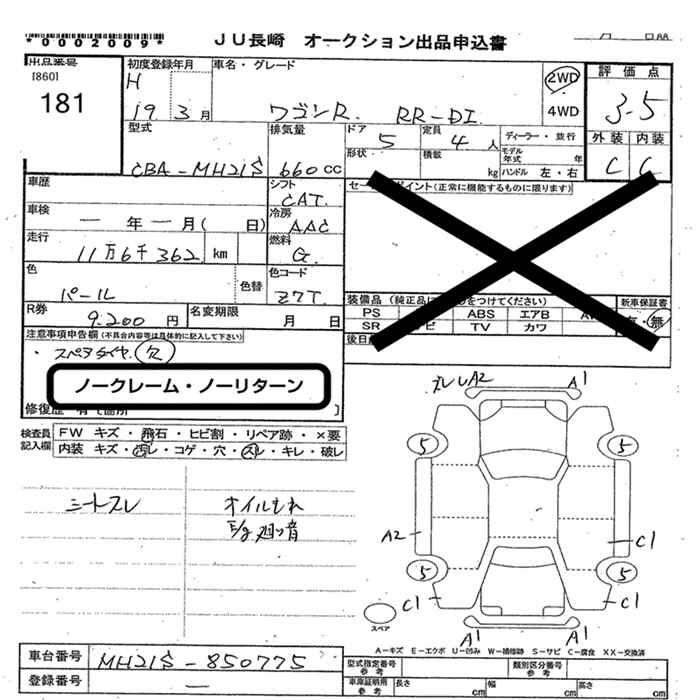 *0002009*
JU長崎 オークション出品申込書
月 日
出品番号
[860]
181
初度登録年月
H
19. 3 月
車名・グレード
ワゴンR. RR-DI.
2WD
4WD
評価点
3-5
外装 内装
C C
型式
CBA-MH21S
排気量
660 CC
ドア
5
定員
4 人
形状
積載
kg
ディーラー・並行
モデル年式 年
ハンドル 左・右
車歴
シフト
CAT.
車検
一 年 一 月( 日)
冷房
AAC
走行
11万6千362 km
燃料
G.
色
パール
色替
色コード
Z7T.
R券
9.200 円
名変期限
月 日
セー ポイント(正常に機能するものに限ります)
装備品 (純正品に をつけてください)
新車保証書
・無
PS ABS エアB
SR TV カワ
後日
注意事項申告欄(不具合内容等は具体的に記入して下さい)
・スペアタイヤ欠
ノークレーム・ノーリターン
修復歴 有 箇所
検査員記入欄
FW キズ・飛石・ヒビ割・リペア跡・×要
内装 キズ・汚れ・コゲ・穴・スレ・キレ・破レ
シートスレ
オイルもれ
E/g廻り音
ズレ A2 A1
5 5
A2 C1
5 5
C1 C1
A1 A1
スペア
A-キズ E-エクボ U-凹み W-補修跡 S-サビ C-腐食 XX-交換済
車台番号
MH21S-850775
登録番号
—
型式指定番号
類別区分番号
車庫証明用参考
長さ cm
幅 cm
高さ cm